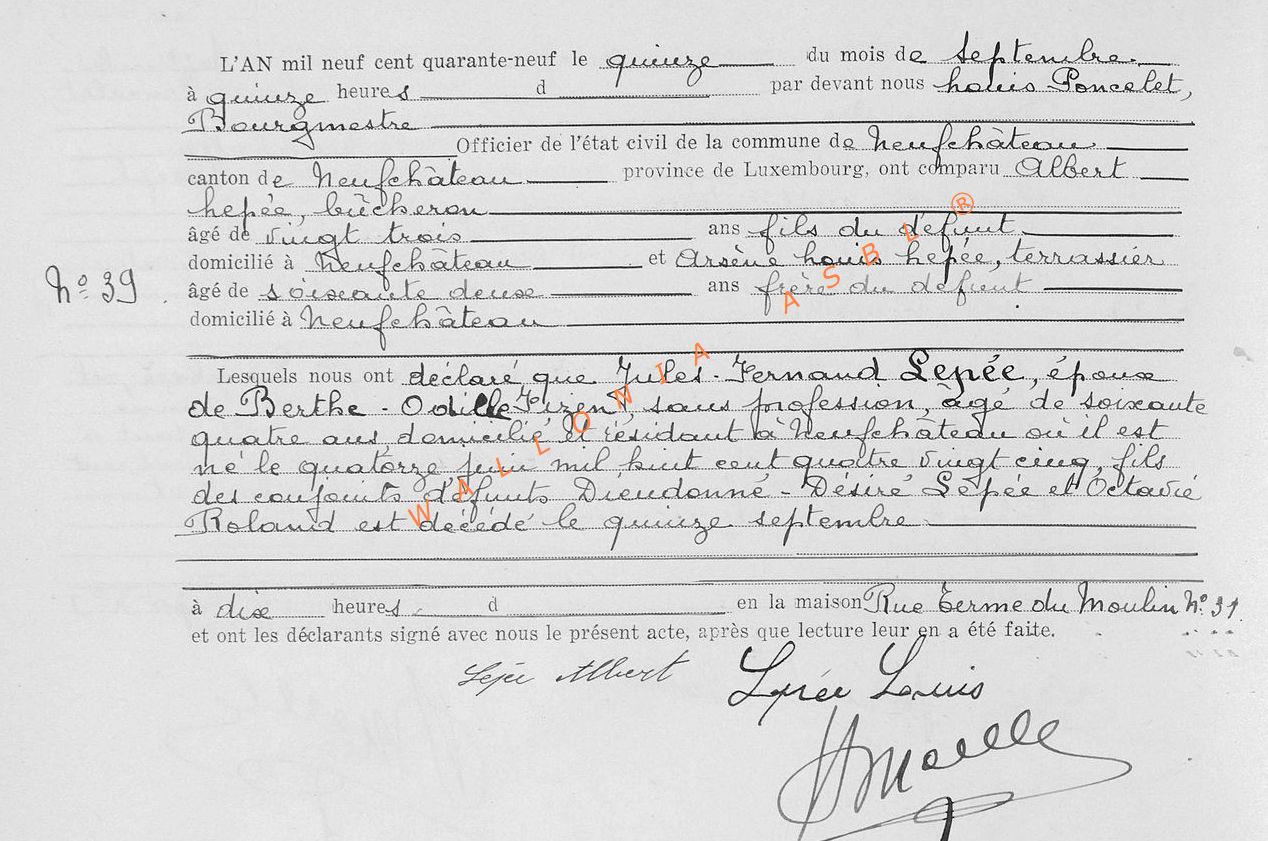 L'AN mil neuf cent quarante-neuf le quinze du mois de septembre
à quinze heures d par devant nous Louis Poncelet,
Bourgmestre
Officier de l'état civil de la commune de Neufchâteau
canton de Neufchâteau province de Luxembourg, ont comparu Albert
Lepée, bûcheron
âgé de vingt trois ans fils du défunt
domicilié à Neufchâteau et Arsène Louis Lepée, terrassier
Nº 39
âgé de soixante deux ans frère du défunt
domicilié à Neufchâteau
Lesquels nous ont déclaré que Jules-Fernand Lepée, époux
de Berthe-Odille, sans profession, âgé de soixante
quatre ans domicilié et résidant à Neufchâteau où il est
né le quatorze juin mil huit cent quatre vingt cinq, fils
des conjoints défunts Dieudonné-Désiré Lepée et Octavie
Roland est décédé le quinze septembre
à dix heures d en la maison Rue Terme du Moulin Nº 31
et ont les déclarants signé avec nous le présent acte, après que lecture leur en a été faite.
Lepée Albert Lepée Louis
WALLONIA ASBL ®